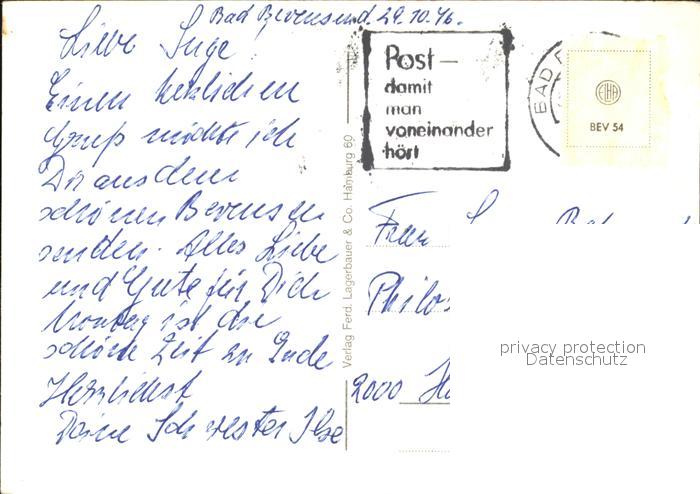 Bad Bevensen d. 29.10.76.
Liebe Inge
Einen herzlichen
Gruß möchte ich
Dir aus dem
schönen Bevensen
senden. Alles Liebe
und Gute für Dich
Montag ist die
schöne Zeit zu Ende
Herzlichst
Deine Schwester Ilse
Verlag Ferd. Lagerbauer & Co. Hamburg 60
Post–
damit
man
voneinander
hört
BAD
ELHA
BEV 54
Frau
Philos
2000 H
privacy protection
Datenschutz